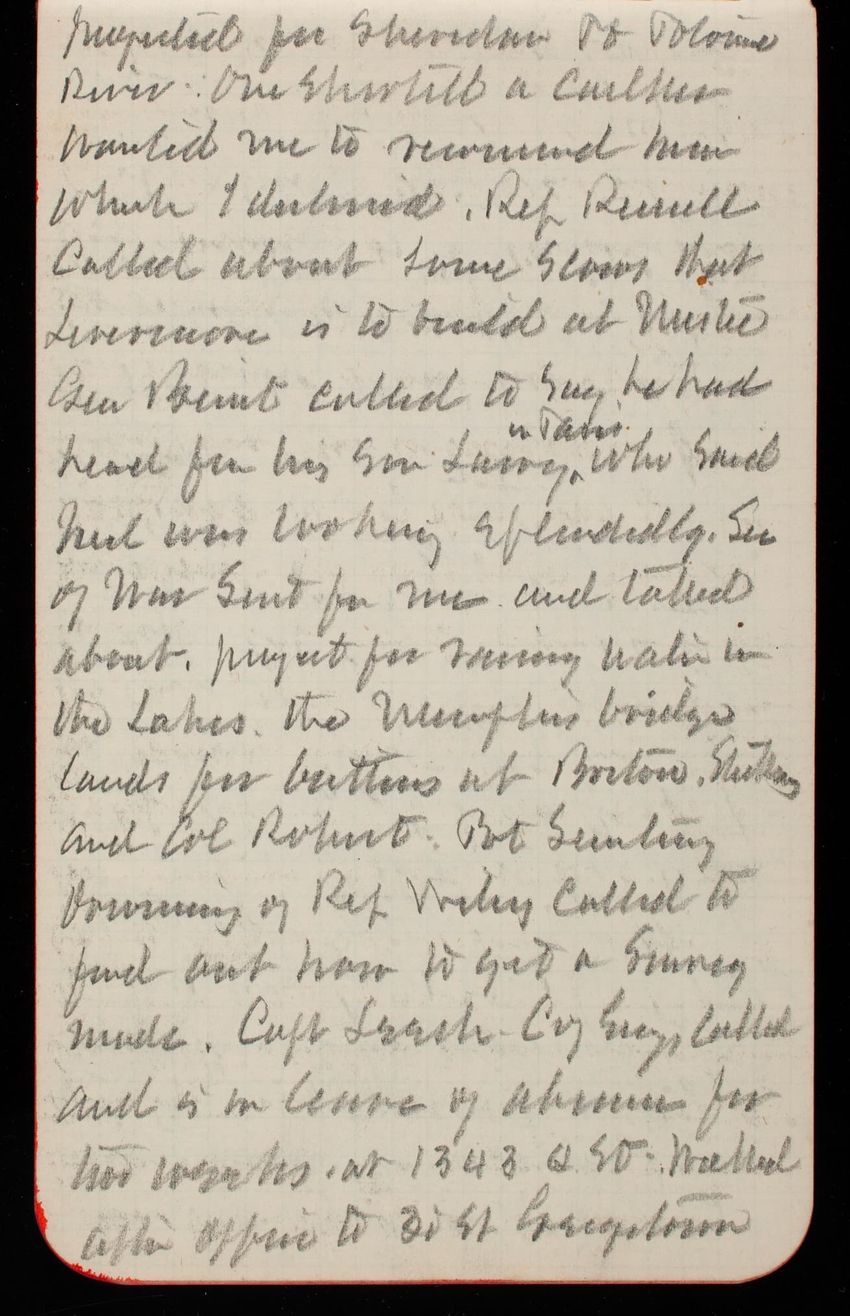 for Sheridan Pt Potomac
River. One Shortell a Caulker
wanted me to recommend him
which I declined. Rep Russell
Called about some Scows that
Livermore is to build at Mystic
Gen Benét called to say he had
heard from his Son Larry, in Paris. who said
Neil was looking splendidly. Sec
of War Sent for me and talked
about. project for raising water in
the Lakes. the Memphis bridge
lands for batteries at Boston.
and Col Robert. Pvt Secretary
Downing of Rep Wiley Called to
find out how to get a Survey
made. Capt Leach Corp Eng, Called
and is on leave of absence for
two weeks. at 1343 Q St. Walked
after office to 30 St Georgetown